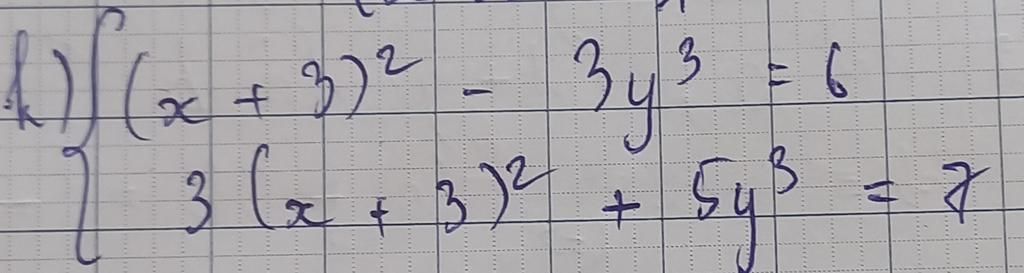 h) { (x + 3)² - 3y³ = 6
3 (x + 3)² + 5y³ = 7